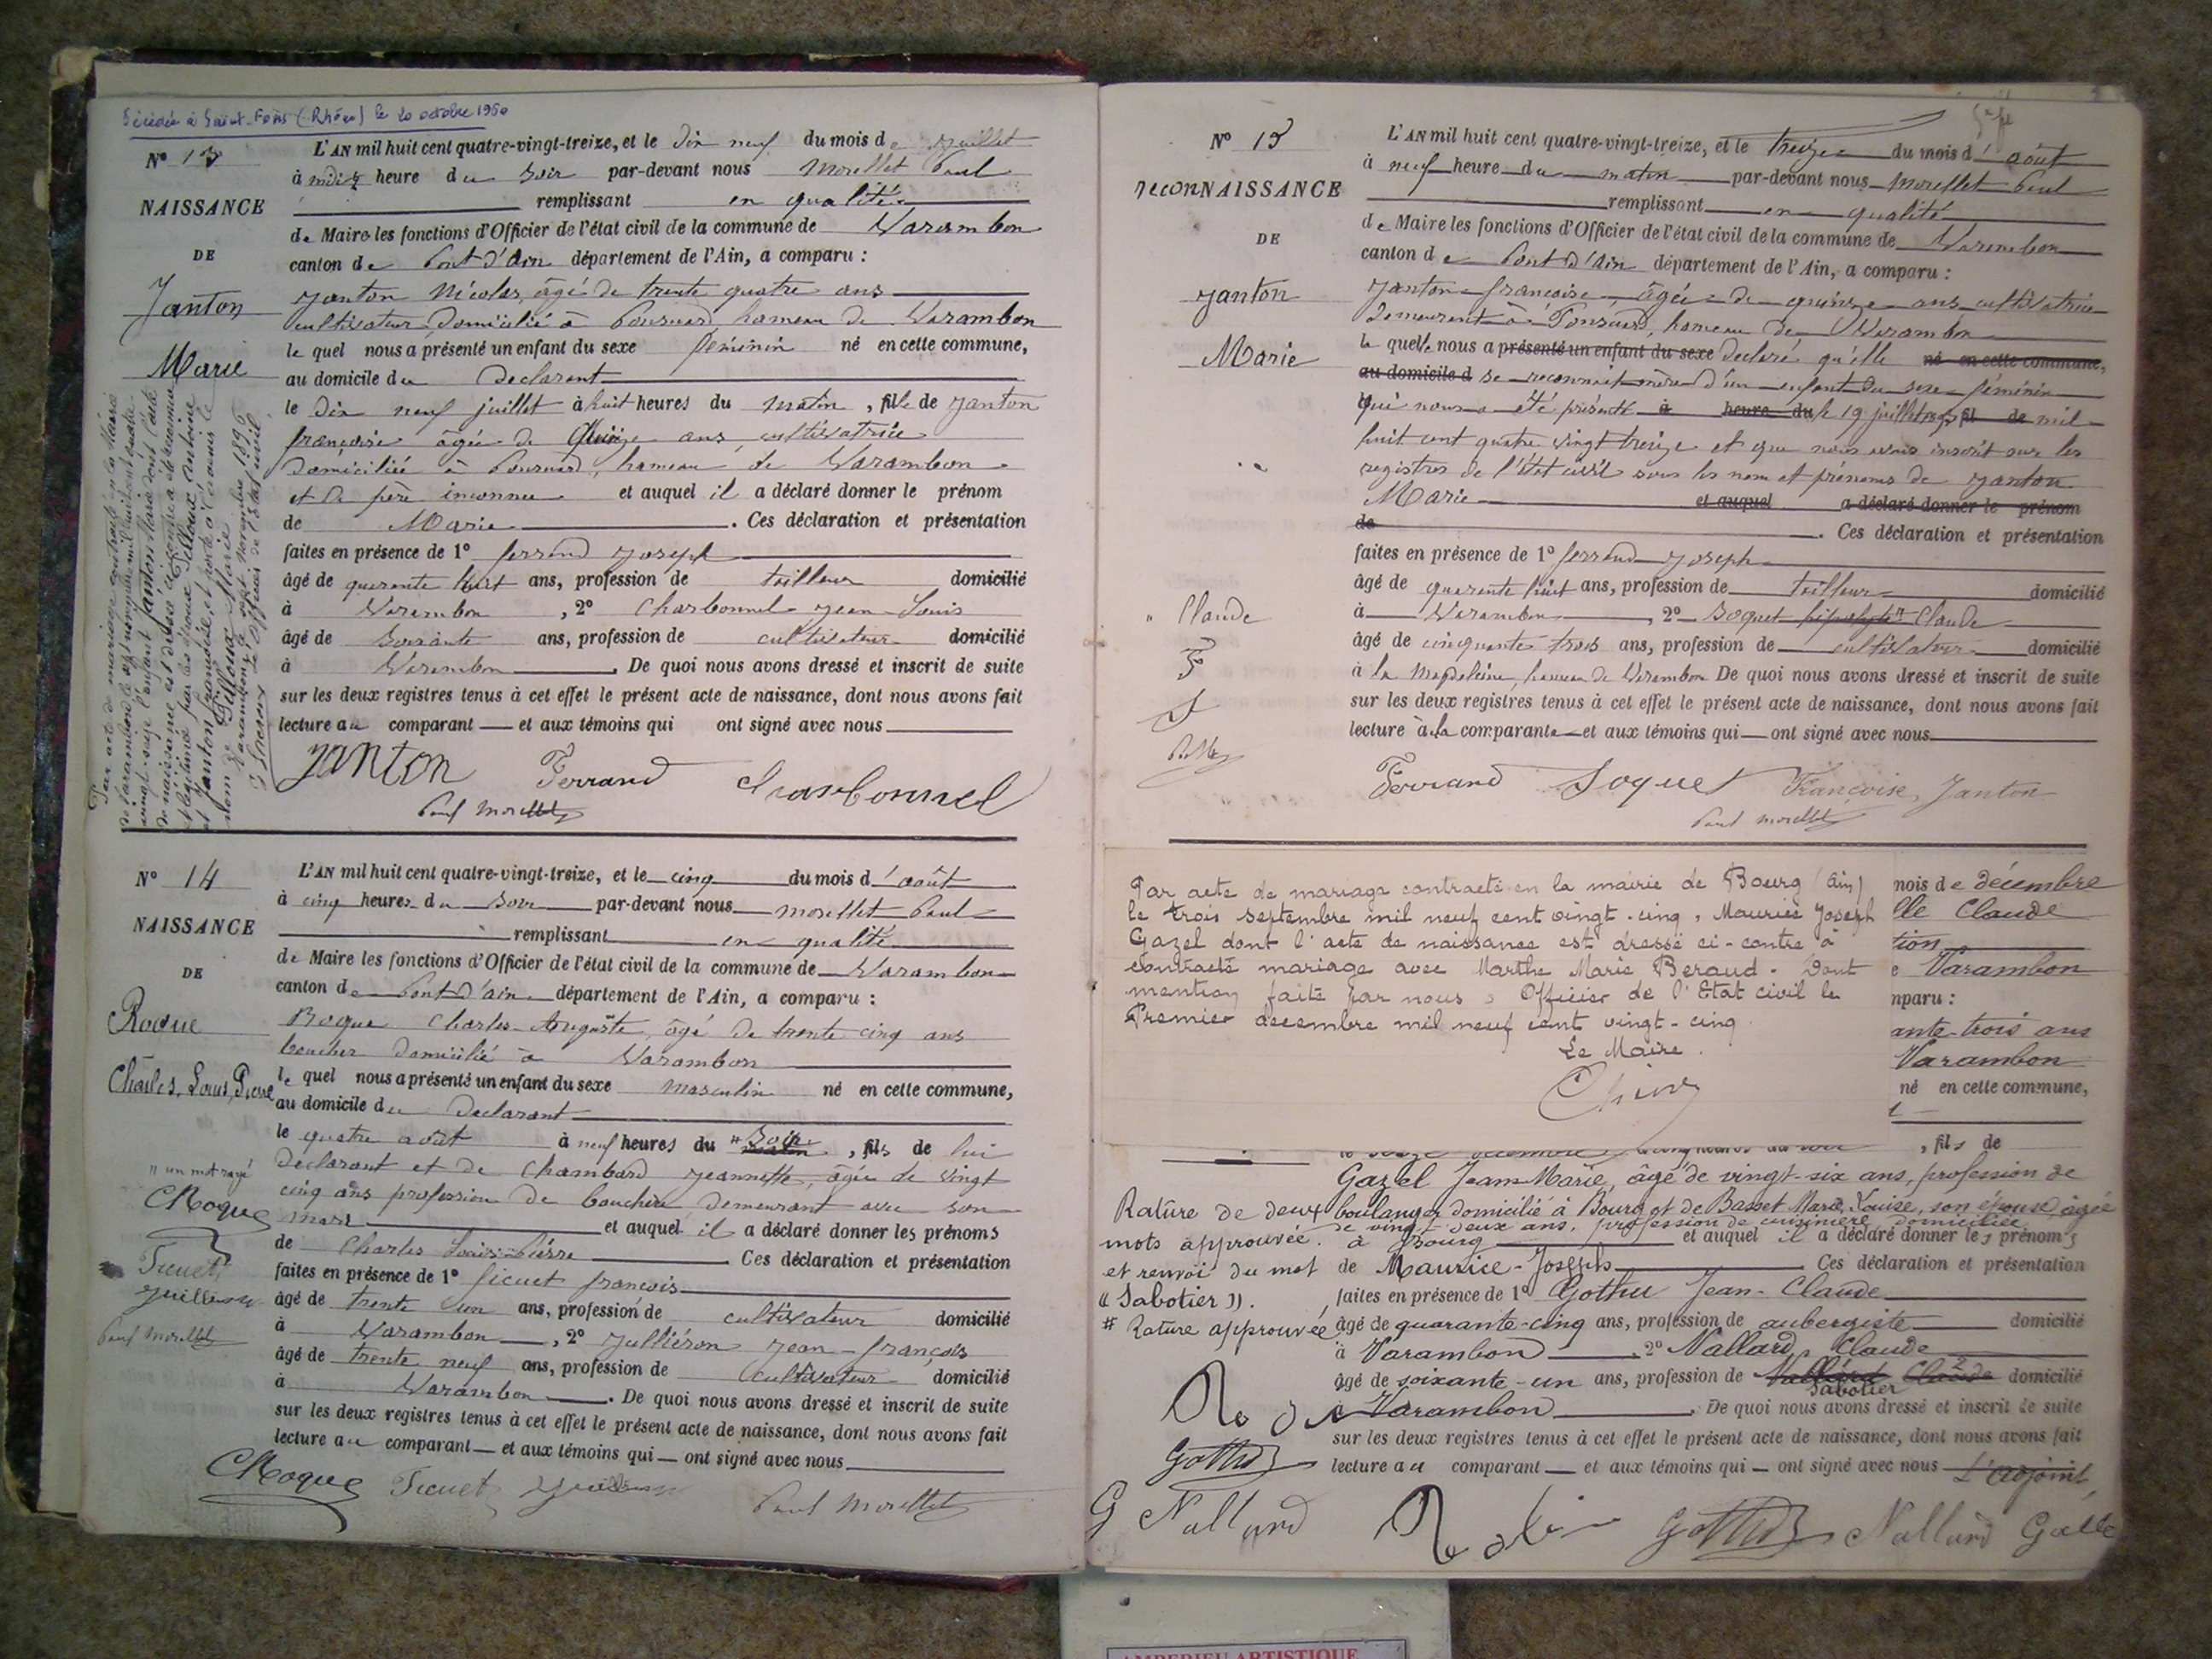 Décédée à Saint-Fons (Rhône) le 20 octobre 1950
N° 13
NAISSANCE
DE
Janton
Marie
L'AN mil huit cent quatre-vingt-treize, et le dix neuf du mois de juillet
à midi ½ heure du soir par-devant nous Morellet Paul
remplissant en qualité
de Maire les fonctions d'Officier de l'état civil de la commune de Varambon
canton de Pont d'Ain département de l'Ain, a comparu :
Janton Nicolas, âgé de trente quatre ans
cultivateur domicilié à hameau de Varambon
le quel nous a présenté un enfant du sexe féminin né en cette commune,
au domicile du Declarant
le dix neuf juillet à huit heures du matin, fille de Janton
françoise âgée de Quinze ans, cultivatrice
domiciliée à hameau de Varambon
et de père inconnu et auquel il a déclaré donner le prénom
de Marie . Ces déclaration et présentation
faites en présence de 1° ferrand Joseph
âgé de quarante huit ans, profession de tailleur domicilié
à Varambon , 2° Charbonnel Jean-Louis
âgé de soixante ans, profession de cultivateur domicilié
à Varambon . De quoi nous avons dressé et inscrit de suite
sur les deux registres tenus à cet effet le présent acte de naissance, dont nous avons fait
lecture au comparant et aux témoins qui ont signé avec nous
Par acte de mariage contracté en la Mairie
de Varambon le vingt novembre mil huit cent quatre-
vingt-seize l'enfant Janton Marie dont l'acte
de naissance est dressé ci-contre a été reconnue
et légitimée par les époux Pilloux Antoine
et Janton française, et porte désormais le
nom de Pilloux Marie
Varambon le vingt Novembre 1896
L'Officier de l'Etat civil
Janton Ferrand Charbonnel
Paul Morellet
N° 14
NAISSANCE
DE
Roque
Charles, Louis, Pierre
L'AN mil huit cent quatre-vingt-treize, et le cinq du mois d'août
à cinq heures du soir par-devant nous Morellet Paul
remplissant en qualité
de Maire les fonctions d'Officier de l'état civil de la commune de Varambon
canton de Pont d'ain département de l'Ain, a comparu :
Roque Charles-Auguste, âgé de trente cinq ans
boucher domicilié à Varambon
le quel nous a présenté un enfant du sexe masculin né en cette commune,
au domicile du Declarant
le quatre août à neuf heures du " soir matin , fils de lui
declarant et de Chambard Jeannette, âgée de vingt
cinq ans profession de bouchère demeurant avec son
mari et auquel il a déclaré donner les prénoms
de Charles Louis Pierre Ces déclaration et présentation
faites en présence de 1° ficuet françois
âgé de trente un ans, profession de cultivateur domicilié
à Varambon , 2° Julliéron Jean-françois
âgé de trente neuf ans, profession de cultivateur domicilié
à Varambon . De quoi nous avons dressé et inscrit de suite
sur les deux registres tenus à cet effet le présent acte de naissance, dont nous avons fait
lecture au comparant et aux témoins qui ont signé avec nous
" un mot rayé
CRoque
Ficuet
Paul Morellet
CRoque Ficuet Paul Morellet
N° 15
reconNAISSANCE
DE
Janton
Marie
L'AN mil huit cent quatre-vingt-treize, et le treize du mois d'août
à neuf heure du matin par-devant nous Morellet Paul
remplissant en qualité
de Maire les fonctions d'Officier de l'état civil de la commune de Varambon
canton de Pont d'Ain département de l'Ain, a comparu :
Janton françoise, âgée de quinze ans cultivatrice
demeurant à hameau de Varambon
le quelle nous a présenté un enfant du sexe declaré qu'elle né en cette commune,
au domicile d se reconnait mère d'un enfant du sexe féminin
qui nous a été présenté à heure du le 19 juillet fil de mil
huit cent quatre vingt treize et que nous avons inscrit sur les
registres de l'état civil sous les nom et prénoms de Janton
Marie et auquel a déclaré donner le prénom
de . Ces déclaration et présentation
faites en présence de 1° ferrand Joseph
âgé de quarante huit ans, profession de tailleur domicilié
à Varambon , 2° Soquet hipolyte " Claude
âgé de cinquante trois ans, profession de cultivateur domicilié
à la Magdeleine, hameau de Varambon De quoi nous avons dressé et inscrit de suite
sur les deux registres tenus à cet effet le présent acte de naissance, dont nous avons fait
lecture à la comparante et aux témoins qui ont signé avec nous
" Claude
F
S
Ferrand Soquet Françoise Janton
Paul Morellet
Par acte de mariage contracté en la mairie de Bourg (Ain)
le trois septembre mil neuf cent vingt-cinq, Maurice Joseph
Gazel dont l'acte de naissance est dressé ci-contre à
contracté mariage avec Marthe Marie Beraud. Dont
mention faite par nous Officier de l'Etat civil le
Premier decembre mil neuf cent vingt-cinq.
Le Maire.
mois de décembre
lle Claude
tion
e Varambon
mparu :
ante-trois ans
Varambon
né en cette commune,
, fils de
Gazel Jean-Marie, âgé de vingt-six ans, profession de
boulanger domicilié à Bourg et de Basset Marie Louise, son épouse, âgée
de vingt-deux ans, profession de cuisinière domiciliée
à Bourg et auquel il a déclaré donner les prénoms
de Maurice-Joseph Ces déclaration et présentation
faites en présence de 1° Gothu Jean-Claude
âgé de quarante-cinq ans, profession de aubergiste domicilié
à Varambon , 2° Nallard, Claude
âgé de soixante-un ans, profession de Nallard Claude Sabotier domicilié
à Varambon . De quoi nous avons dressé et inscrit de suite
sur les deux registres tenus à cet effet le présent acte de naissance, dont nous avons fait
lecture au comparant et aux témoins qui ont signé avec nous L'adjoint,
Rature de deux
mots approuvée.
et renvoi du mot
« Sabotier ».
# Rature approuvée
Gothu
G Nallard Gothu Nallard
AMBERIEU ARTISTIQUE